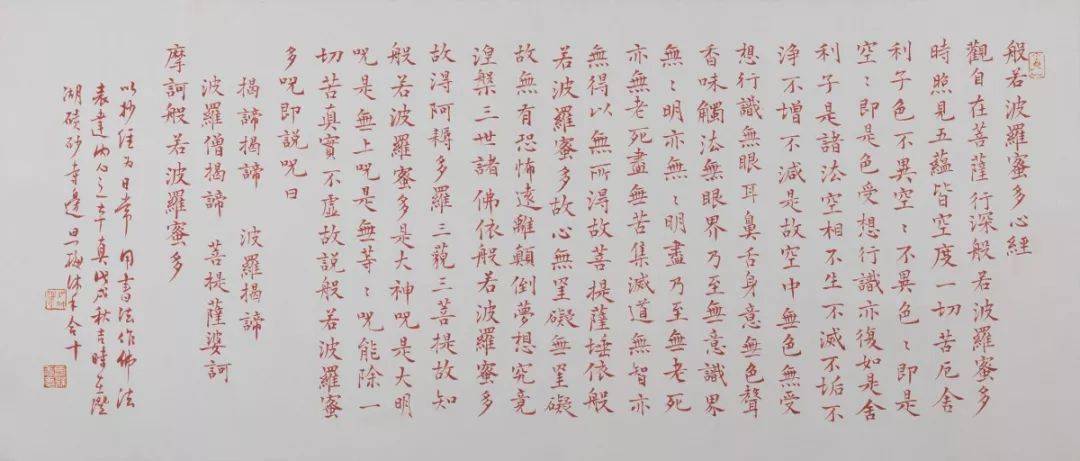 般若波羅蜜多心經
觀自在菩薩行深般若波羅蜜多
時照見五蘊皆空度一切苦厄舍
利子色不異空〻不異色〻即是
空〻即是色受想行識亦復如是舍
利子是諸法空相不生不滅不垢不
淨不增不減是故空中無色無受
想行識無眼耳鼻舌身意無色聲
香味觸法無眼界乃至無意識界
無〻明亦無〻明盡乃至無老死
亦無老死盡無苦集滅道無智亦
無得以無所得故菩提薩埵依般
若波羅蜜多故心無罣礙無罣礙
故無有恐怖遠離顛倒夢想究竟
涅槃三世諸佛依般若波羅蜜多
故得阿耨多羅三藐三菩提故知
般若波羅蜜多是大神呪是大明
呪是無上呪是無等〻呪能除一
切苦真實不虛故說般若波羅蜜
多呪即說呪曰
揭諦揭諦 波羅揭諦
波羅僧揭諦 菩提薩婆訶
摩訶般若波羅蜜多
以抄經為日常 用書法作佛法
表達內心之本真戊戌秋吉時在澄
湖磧砂寺邊